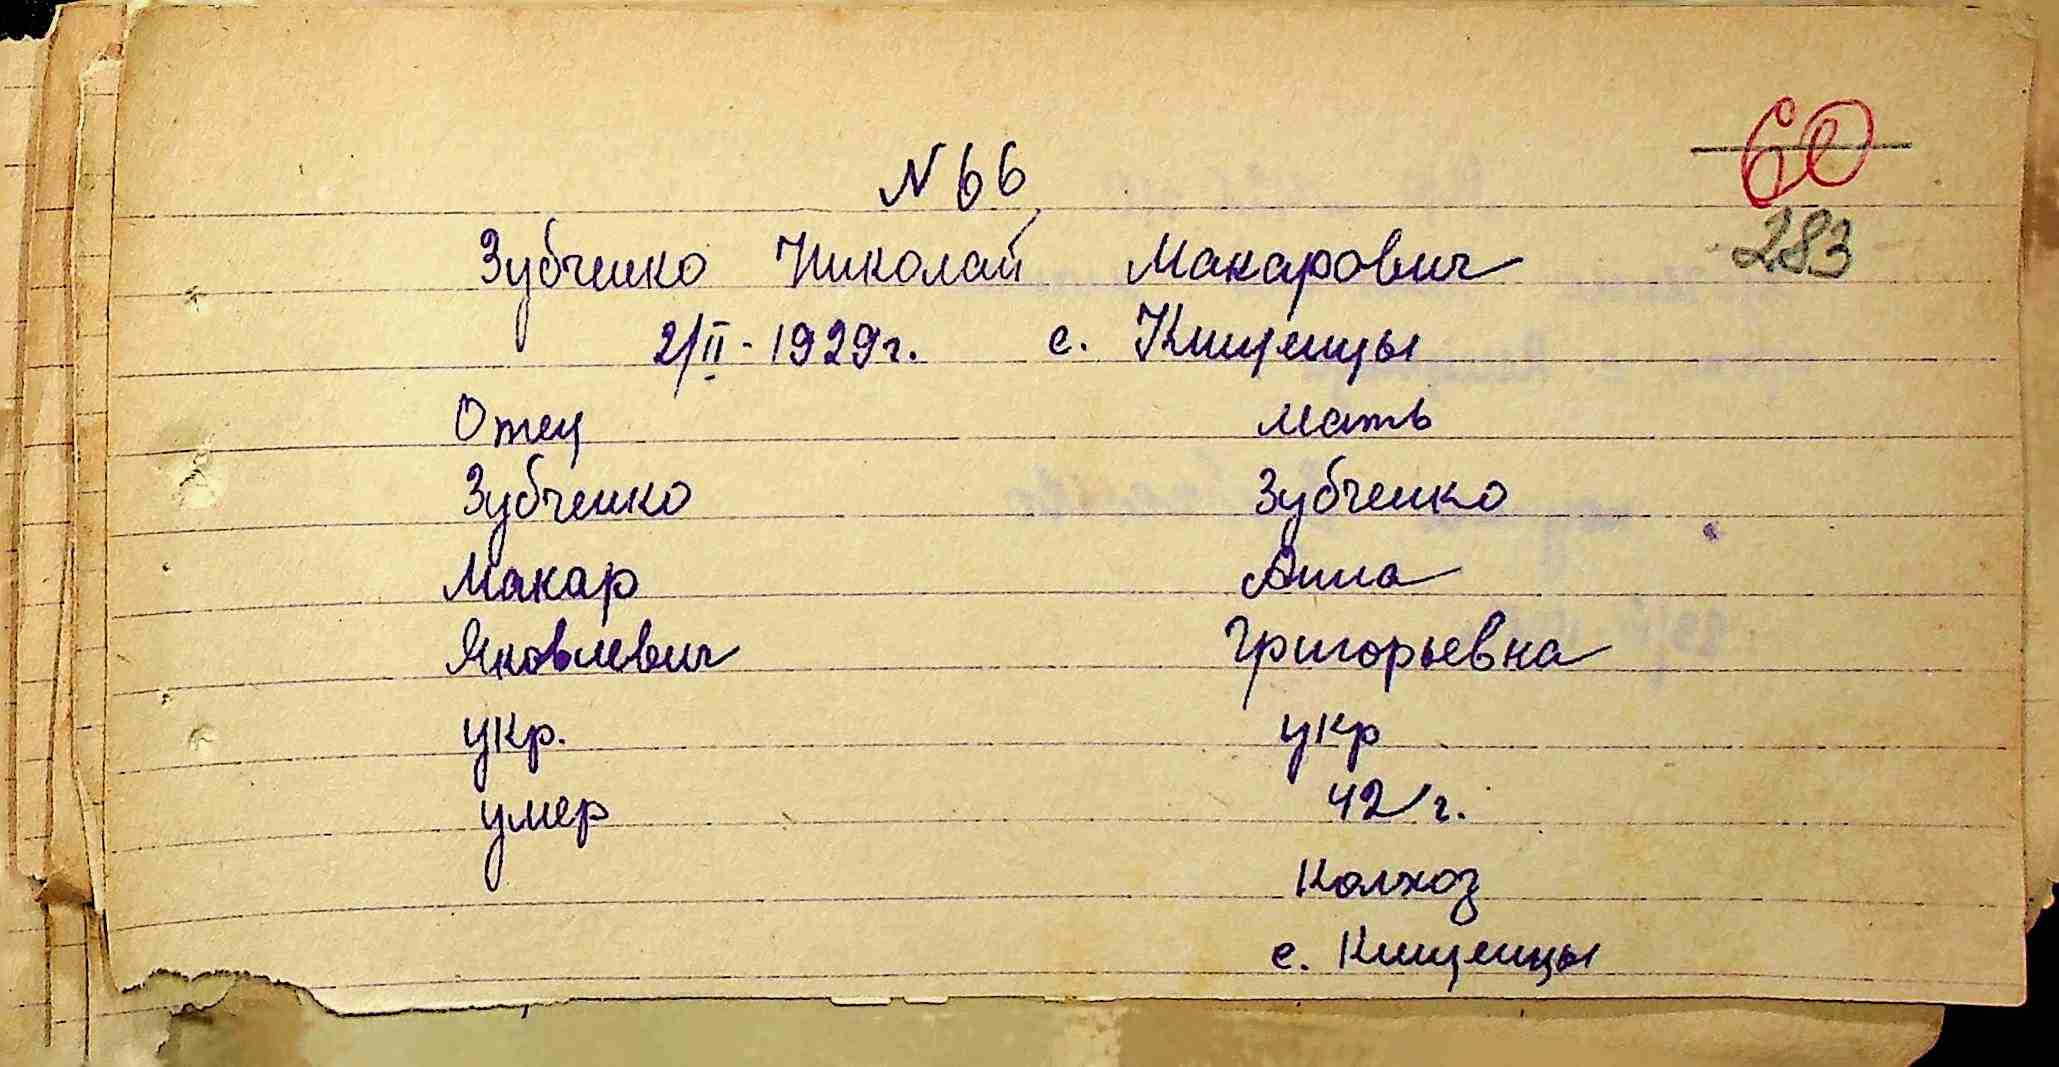 60
N 66
283
Зубченко Николай Макарович
2/II - 1929 г. с. Кищенцы
Отец Мать
Зубченко Зубченко
Макар Анна
Яковлевич Григорьевна
укр. укр
умер 42 г.
Колхоз
с. Кищенцы